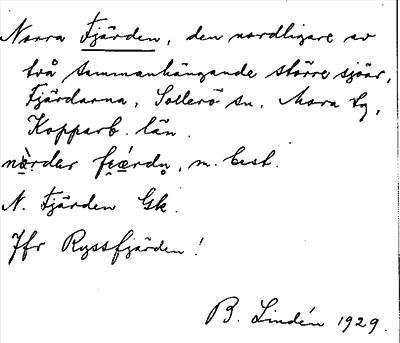 Norra Fjärden, den nordligare av
två sammanhängande större sjöar,
Fjärdarna, Sollerö sn. Mora tg,
Kopparb. län.
nòrdar fįǽrdn̥, m. best.
N. Fjärden Gk.
Jfr Ryssfjärden!
B. Lindén 1929.